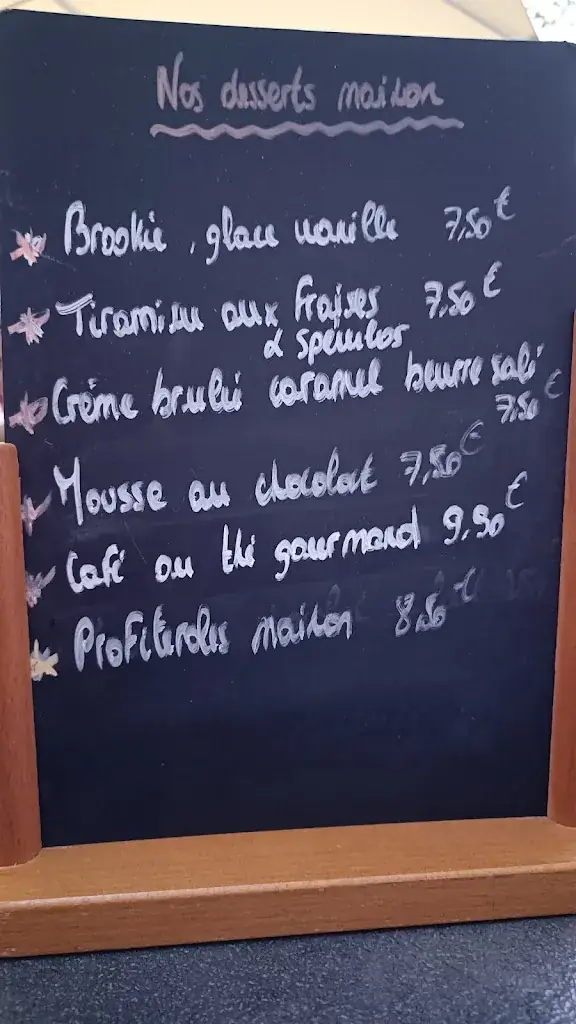 Nos desserts maison
Brookie, glace vanille 7,50€
Tiramisu aux fraises 7,50€
& speculos
Crème brulée caramel beurre salé
7,50€
Mousse au chocolat 7,50€
Café ou thé gourmand 9,90€
Profiteroles maison 8,50€